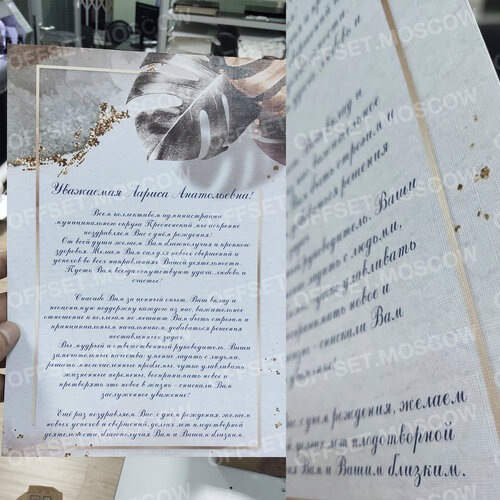 Уважаемая Лариса Анатольевна!
Всем коллективом администрации
муниципального округа Пресненский мы искренне
поздравляем Вас с днём рождения!
От всей души желаем Вам благополучия и крепкого
здоровья. Желаем Вам сил для новых свершений и
успехов во всех направлениях Вашей деятельности.
Пусть Вам всегда сопутствуют удача, любовь и
счастье!
Спасибо Вам за ценный опыт, Ваш вклад и
неоценимую поддержку каждого из нас, уважительное
отношение к коллегам не мешает Вам быть строгим и
принципиальным начальником, добиваться решения
поставленных задач.
Вы мудрый и ответственный руководитель. Ваши
замечательные качества: умение ладить с людьми,
решать многочисленные проблемы, чутко улавливать
жизненные перемены, воспринимать новое и
претворять это новое в жизнь - снискали Вам
заслуженное уважение!
Ещё раз поздравляем Вас с днем рождения, желаем
новых успехов и свершений, долгих лет плодотворной
деятельности, благополучия Вам и Вашим близким.
вклад и
быть строгим и
решения
руководитель. Ваши
с людьми,
улавливать
новое и
снискали Вам
с днем рождения, желаем
лет плодотворной
Вам и Вашим близким.
OFFSET.MOSCOW
OFFSET.MOSCOW
OFFSET.MOSCOW
OFFSET.MOSCOW